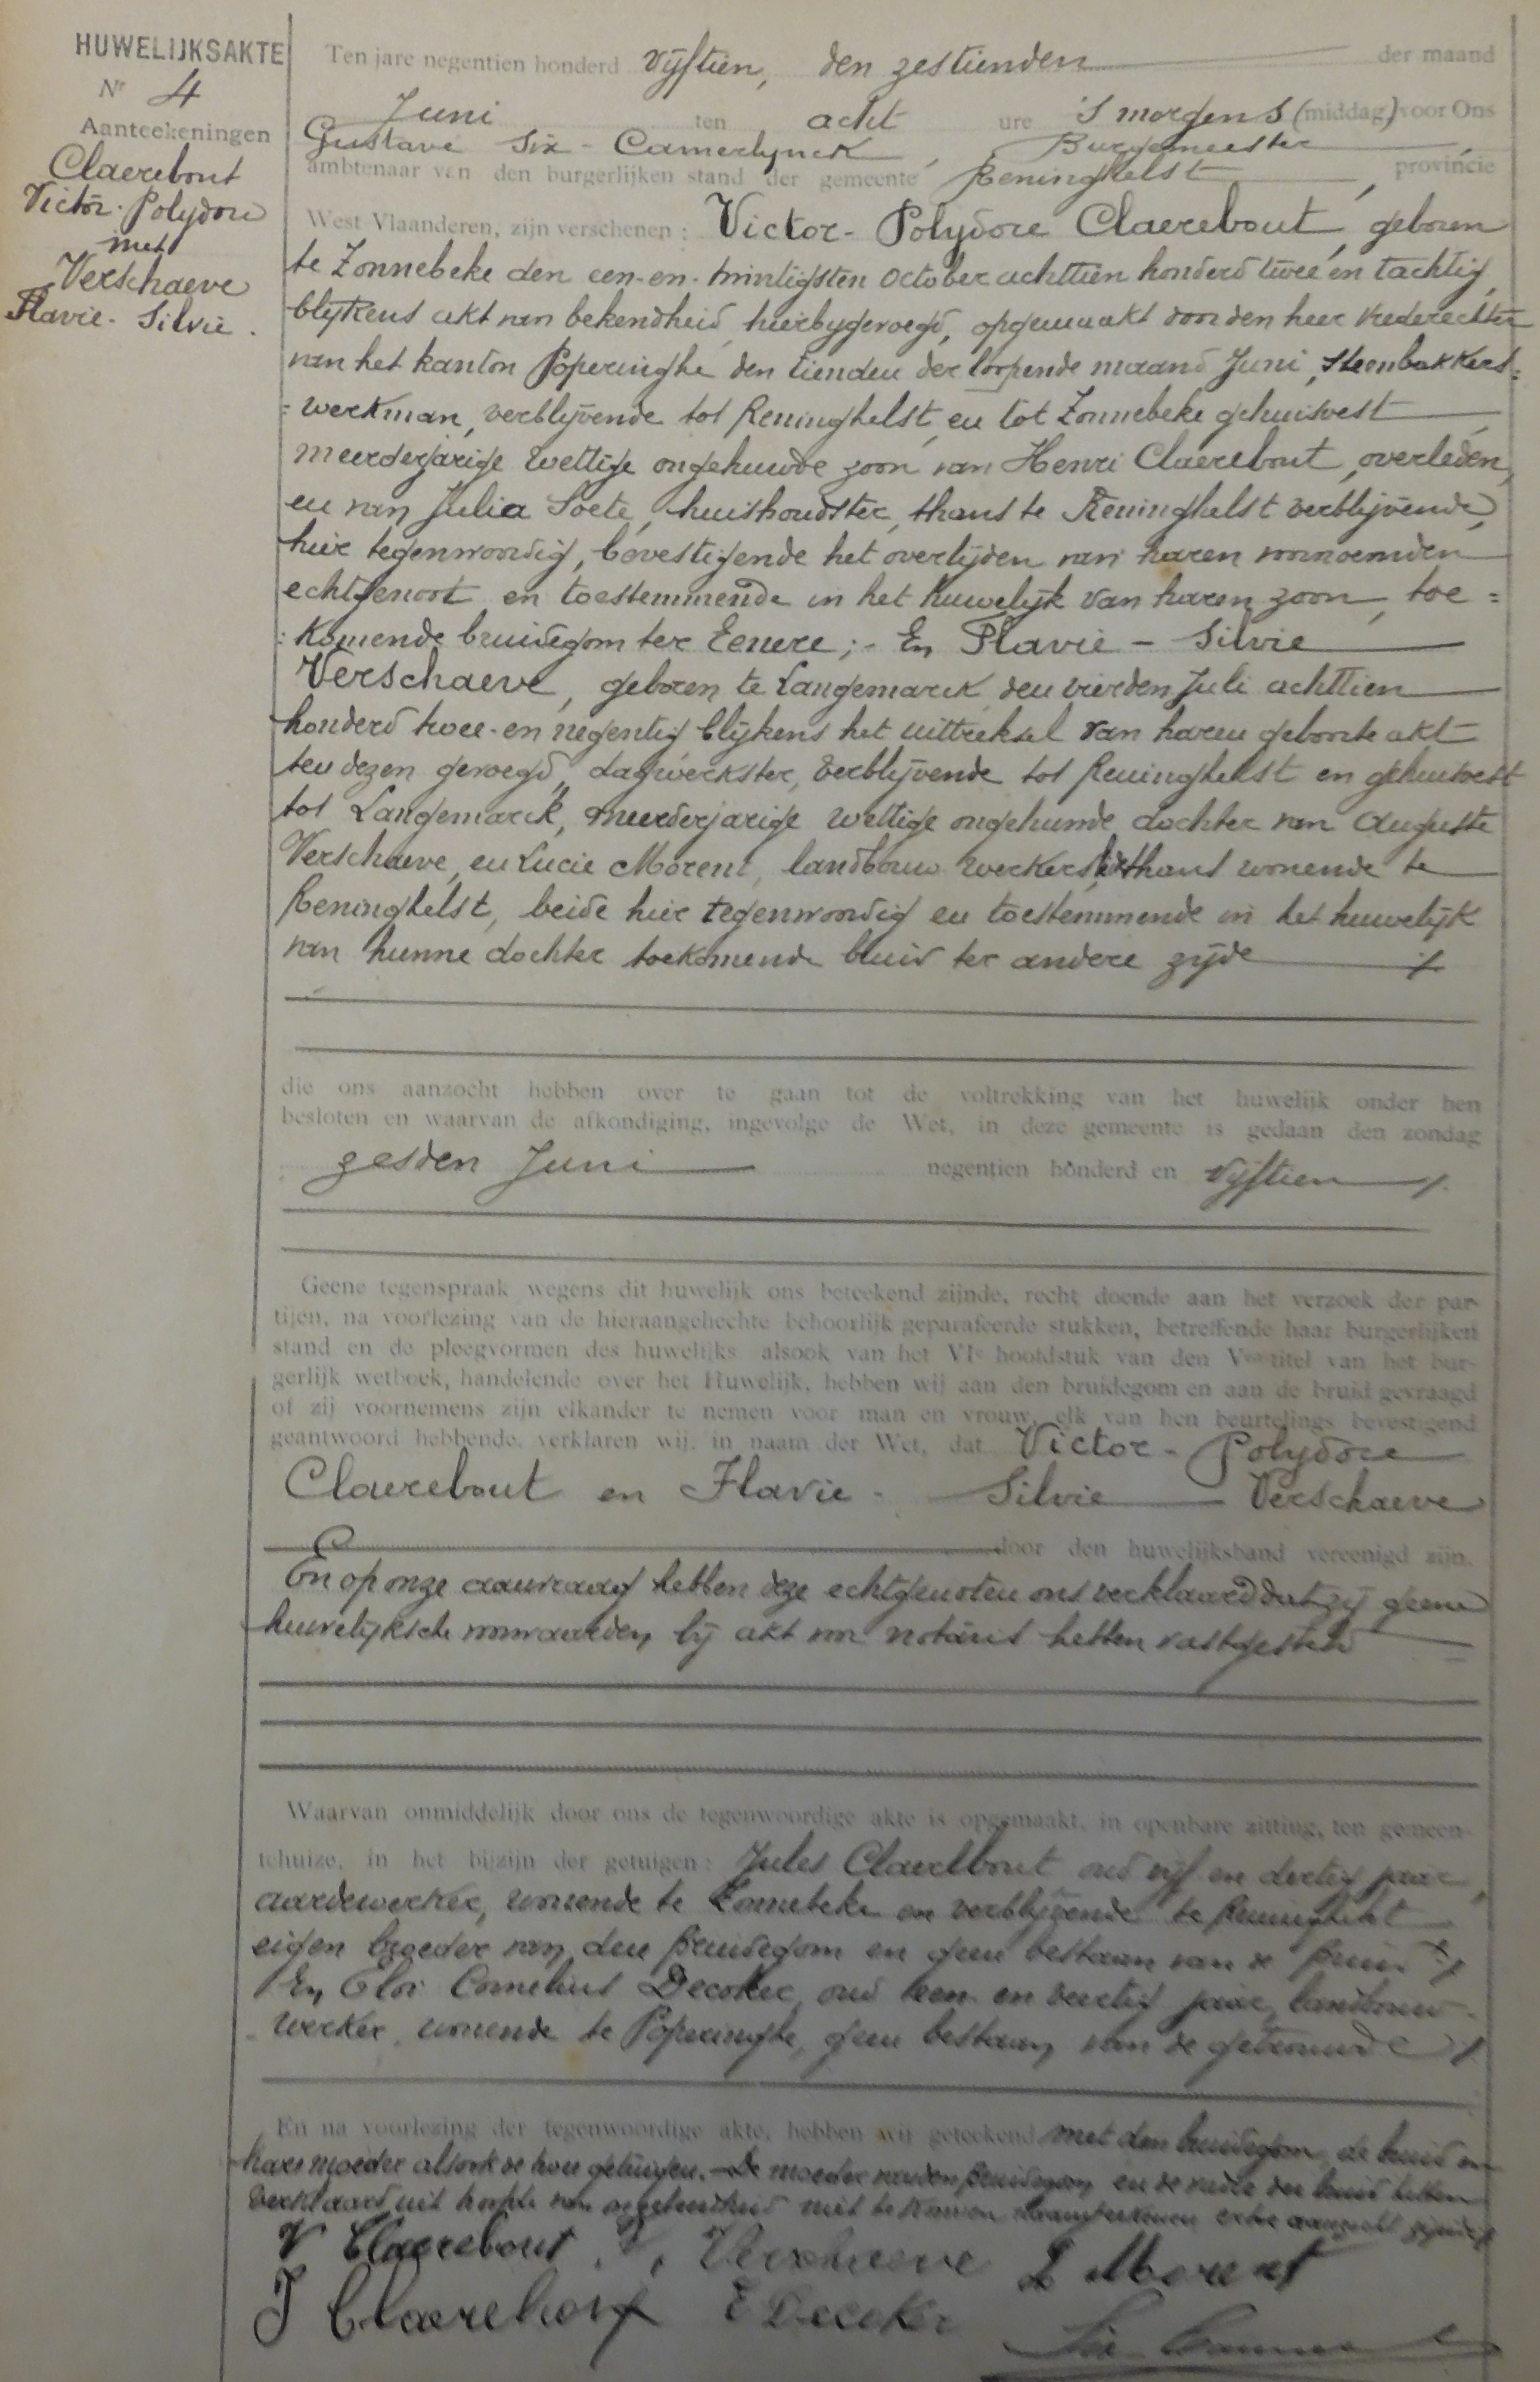 HUWELIJKSAKTE
Nr 4
Aanteekeningen
Claerebout
Victor-Polydore
met
Verschaeve
Flavie-Silvie.
Ten jare negentien honderd vijftien, den zestienden der maand
Juni ten acht ure 's morgens (middag) voor Ons
Gustave Six-Camerlynck, Burgemeester,
ambtenaar van den burgerlijken stand der gemeente Reninghelst, provincie
West Vlaanderen, zijn verschenen: Victor-Polydore Claerebout, geboren
te Zonnebeke den een-en-twintigsten October achttien honderd twee en tachtig,
blijkens akt van bekendheid, hierbijgevoegd, opgemaakt door den heer Vrederechter
van het kanton Poperinghe den tienden der loopende maand Juni, steenbakkers=
=werkman, verblijvende tot Reninghelst, en tot Zonnebeke gehuisvest,
meerderjarige wettige ongehuwde zoon van Henri Claerebout, overleden,
en van Julia Soete, huishoudster, thans te Reninghelst verblijvende,
hier tegenwoordig, bevestigende het overlijden van haren voornoemden
echtgenoot en toestemmende in het huwelijk van haren zoon, toe=
=komende bruidegom ter Eenere;- En Flavie-Silvie
Verschaeve, geboren te Langemarck, den vierden Juli achttien
honderd twee-en negentig blijkens het uittreksel van haren geboorte akt
ten dezen gevoegd, dagwerkster, verblijvende tot Reninghelst en gehuisvest
tot Langemarck, meerderjarige wettige ongehuwde dochter van Auguste
Verschaeve, en Lucie Morent, landbouw werkers, thans wonende te
Reninghelst, beide hier tegenwoordig en toestemmende in het huwelijk
van hunne dochter toekomende bruid ter andere zijde
die ons aanzocht hebben over te gaan tot de voltrekking van het huwelijk onder hen
besloten en waarvan de afkondiging, ingevolge de Wet, in deze gemeente is gedaan den zondag
zesden Juni negentien honderd en vijftien
Geene tegenspraak wegens dit huwelijk ons beteekend zijnde, recht doende aan het verzoek der par-
tijen, na voorlezing van de hieraangehechte behoorlijk geparafeerde stukken, betreffende haar burgerlijken
stand en de pleegvormen des huwelijks alsook van het VIe hoofdstuk van den Ven titel van het bur-
gerlijk wetboek, handelende over het Huwelijk, hebben wij aan den bruidegom en aan de bruid gevraagd
of zij voornemens zijn elkander te nemen voor man en vrouw, elk van hen beurtelings bevestigend
geantwoord hebbende, verklaren wij, in naam der Wet, dat Victor-Polydore
Claerebout en Flavie-Silvie Verschaeve
door den huwelijksband vereenigd zijn.
En op onze aanvraag hebben deze echtgenoten ons verklaard dat zij geene
huwelijksche voorwaarden bij akt van notaris hebben vastgesteld
Waarvan onmiddelijk door ons de tegenwoordige akte is opgemaakt, in openbare zitting, ten gemeen-
tehuize, in het bijzijn der getuigen: Jules Claerebout oud vijf en dertig jaar,
aardewerker, wonende te Zonnebeke en verblijvende te Reninghelst
eigen broeder van den bruidegom en geen bestaan van de bruid
En Eloi Cornelius Decoker, oud een en veertig jaar, landbouw-
werker, wonende te Poperinghe, geen bestaan van de getrouwde
En na voorlezing der tegenwoordige akte, hebben wij geteekend met den bruidegom, de bruid en
hare moeder alsook de twee getuigen. De moeder van den bruidegom en de vader der bruid hebben
verklaard uit hoofde van ongeleerdheid niet te kunnen naamteekenen
V Claerebout Verschaeve L Morent
J Claerebout E Decoker